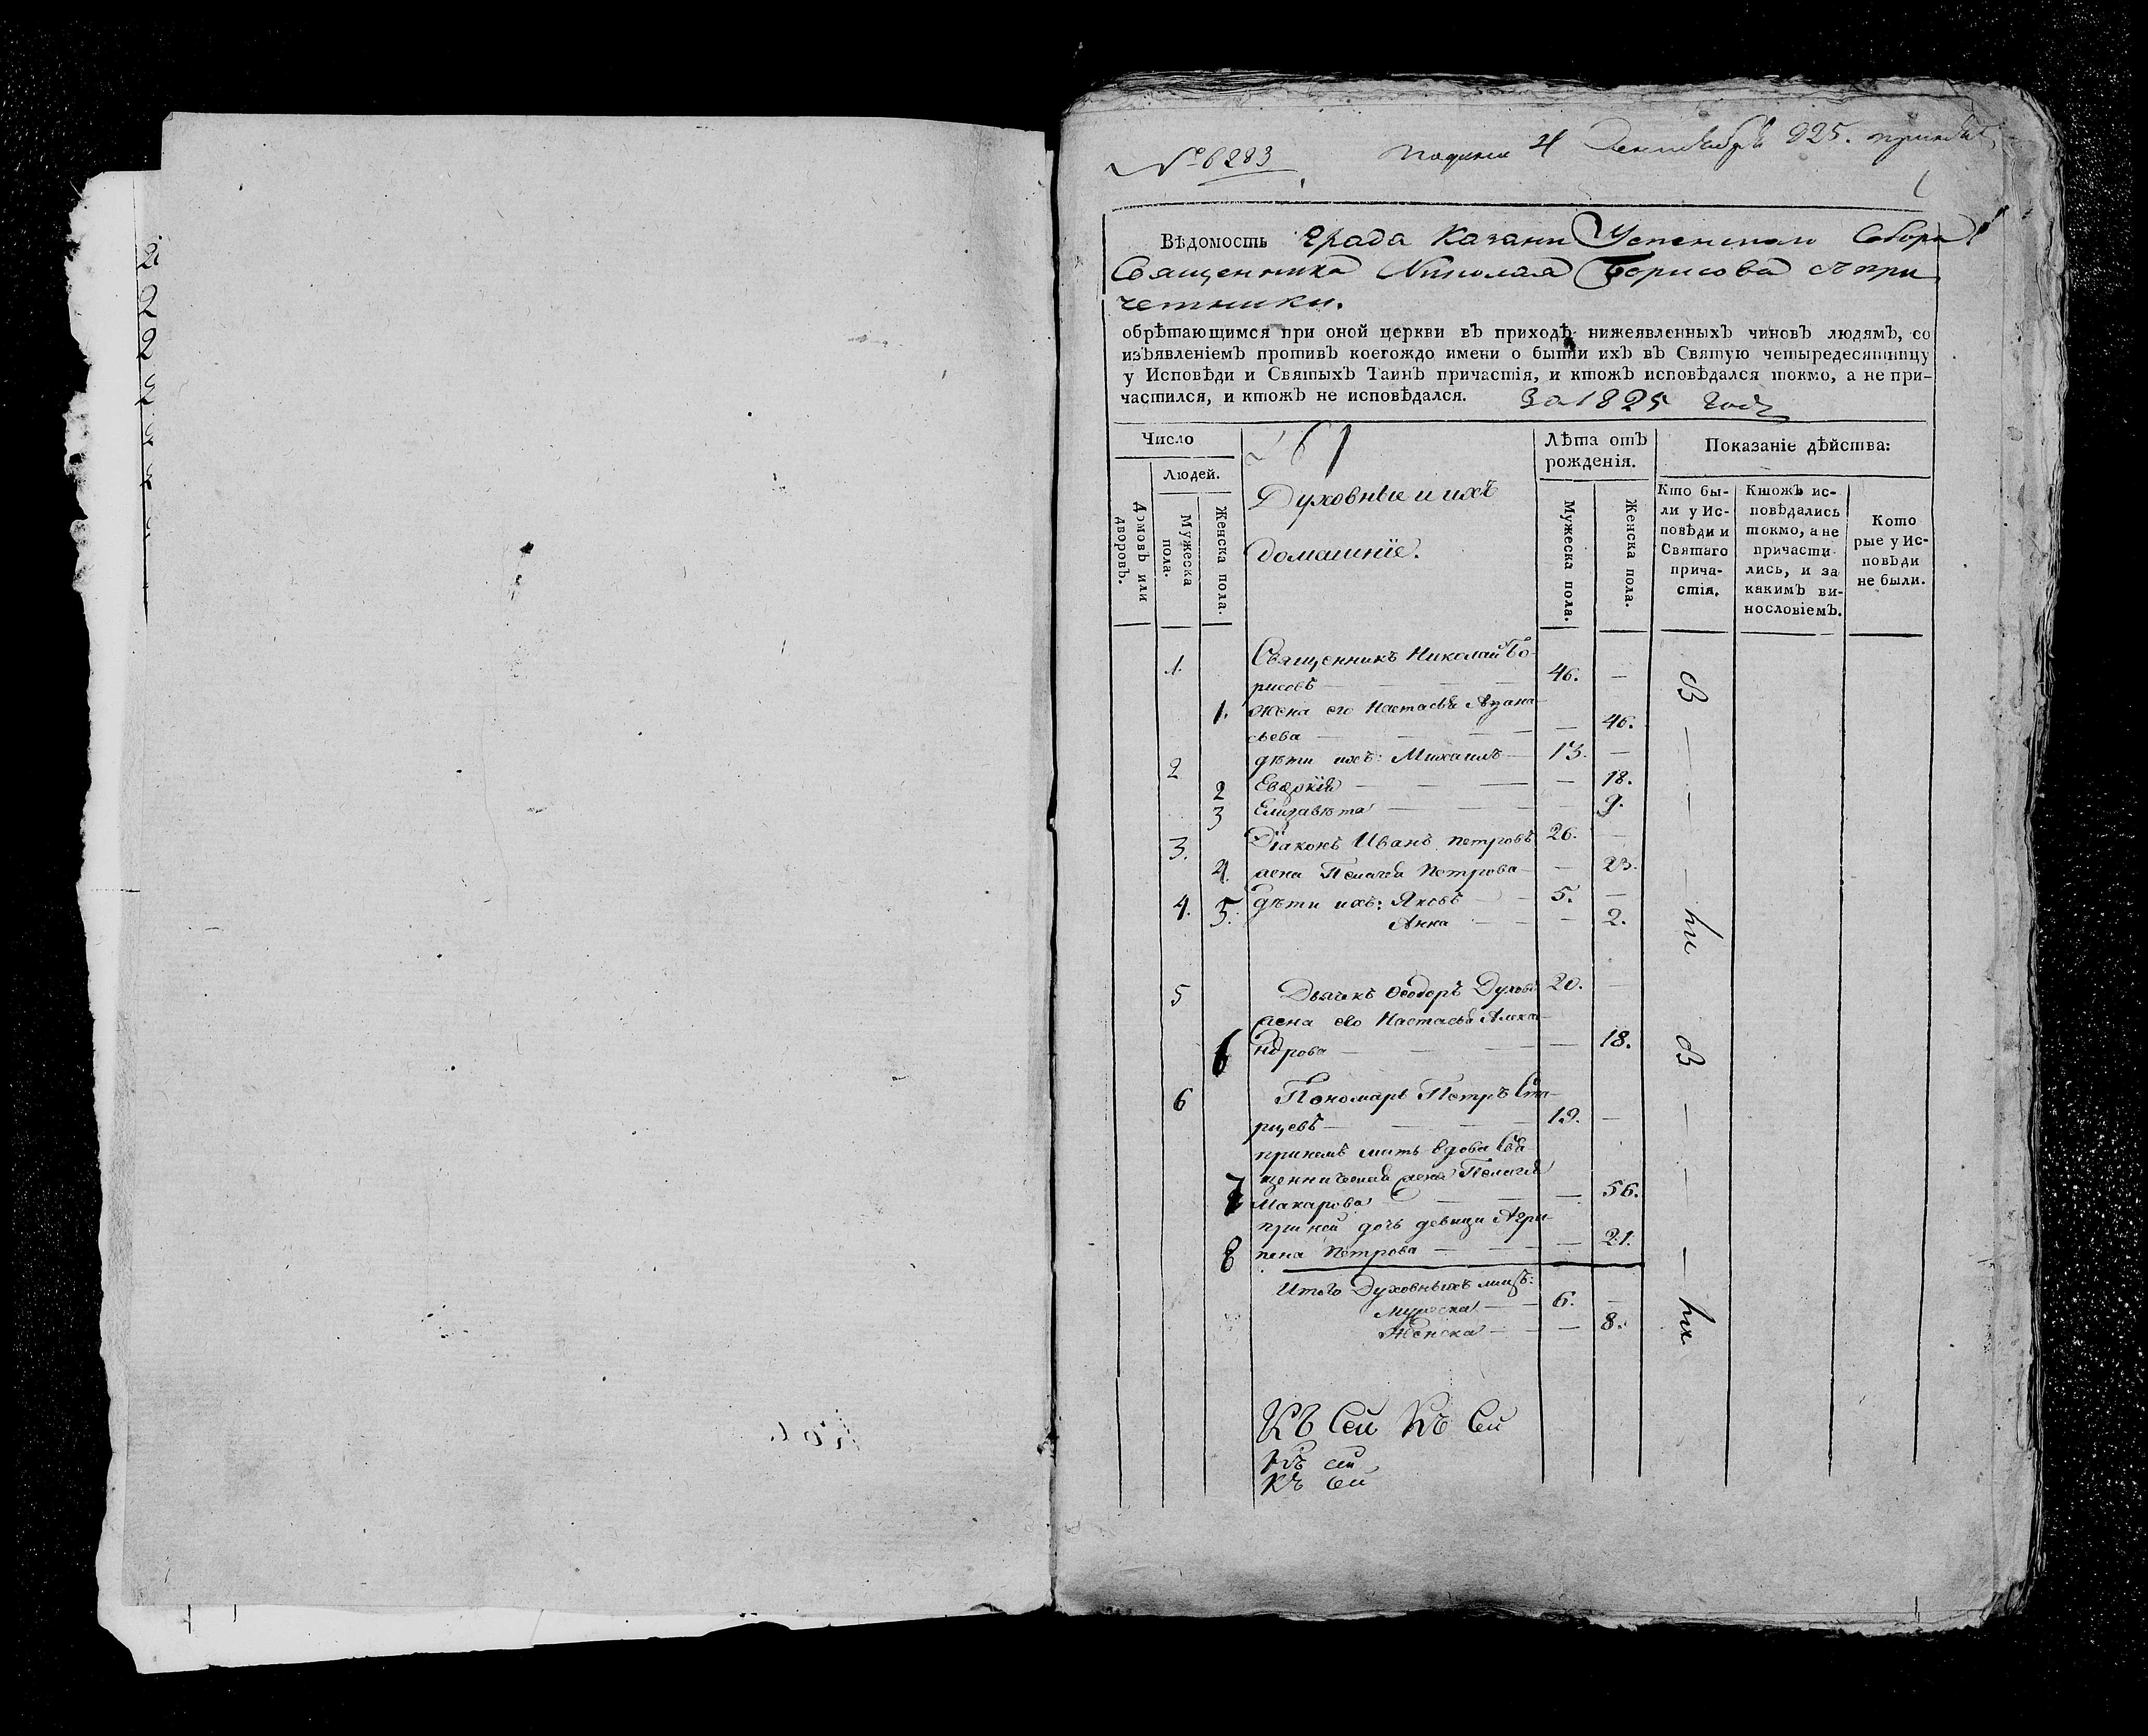 № 6283
4 825.
Вѣдомость града Казани Успенскаго Собора
Священника Николая Борисова съ при
четники.
обрѣтающимся при оной церкви въ приходѣ нижеявленныхъ чиновъ людямъ, со
изъявленіемъ противъ коегождо имени о бытіи ихъ въ Святую четыредесятницу
у Исповѣди и Святыхъ Таинъ причастія, и ктожъ исповѣдался токмо, а не при-
частился, и ктожъ не исповѣдался. За 1825 годъ
Число
Людей.
Домовъ или дворовъ.
Мужеска пола.
Женска пола.
Духовные и ихъ
домашніе.
Лѣта отъ
рожденія.
Мужеска пола.
Женска пола.
Показаніе дѣйства:
Кто бы-
ли у Ис-
повѣди и
Святаго
прича-
стія.
Ктожъ ис-
повѣдались
токмо, а не
причасти
лись, и за
какимъ ви-
нословіемъ.
Кото
рые у Ис-
повѣди
не были.
1. Священникъ Николай Бо-
рисовъ — 46. —
1. жена его Настасья Афана-
сьева — — 46.
2 дѣти ихъ: Михаилъ — 13. —
2 Евдокія — — 18.
3 Елизавета — — 9.
3. Діаконъ Иванъ Петровъ 26. —
4. жена Пелагія Петрова — — 23.
4. дѣти ихъ: Яковъ — 5. —
5. Анна — — 2.
5 Дьячкъ Ѳеодоръ Духовъ 20. —
жена его Настасья Алекса-
6 ндрова — — 18.
6 Пономарь Петръ Ста-
рцевъ — 19. —
при немъ мать вдова Свя
щенническая жена Пелагія
7 Макарова — — 56.
при ней дочь девица Агри-
8 пена Петрова — — 21.
Итого Духовныхъ лицъ:
Мужеска — 6. —
Женска — — 8.
Къ Сей Къ Сей
Къ сей
Къ Сей